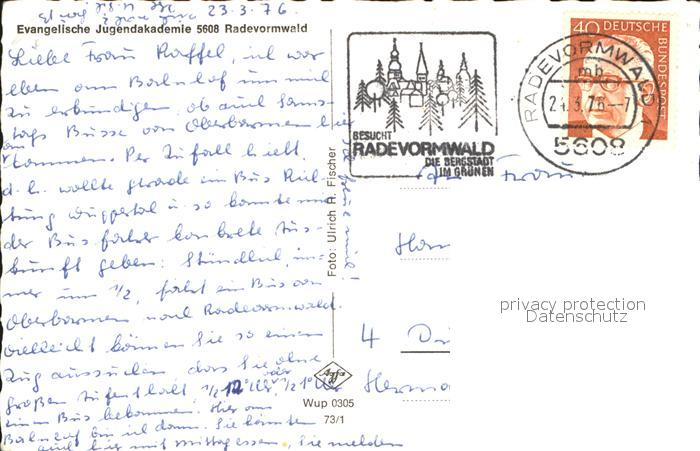 23.3.76
Evangelische Jugendakademie 5608 Radevormwald
Liebe Frau Raffel, ich war
eben am Bahnhof um mich
zu erkundigen, ob auch Sams-
tags Busse von Oberbarmen hier
ankommen. Per Zufall hielt
d. h. wollte gerade ein Bus Rich-
tung Wuppertal u. so konnte mir
der Bus fahrer konkrete Aus-
kunft geben: Stündlich, im-
mer um 1/2, fährt ein Bus von
Oberbarmen nach Radevormwald.
Vielleicht können Sie so einen
Zug aussuchen, dass Sie ohne
großen Aufenthalt 1/2 12 Uhr oder 1/2 1 Uhr
einen Bus bekommen. Hier am
Bahnhof bin ich dann. Sie könnten
auch hier mit Mittagessen, Sie melden
Foto: Ulrich R. Fischer
Agfa
Wup 0305
73/1
BESUCHT
RADEVORMWALD
DIE BERGSTADT
IM GRÜNEN
RADEVORMWALD
mb
5608
40 DEUTSCHE
BUNDESPOST
Frau
4
privacy protection
Datenschutz